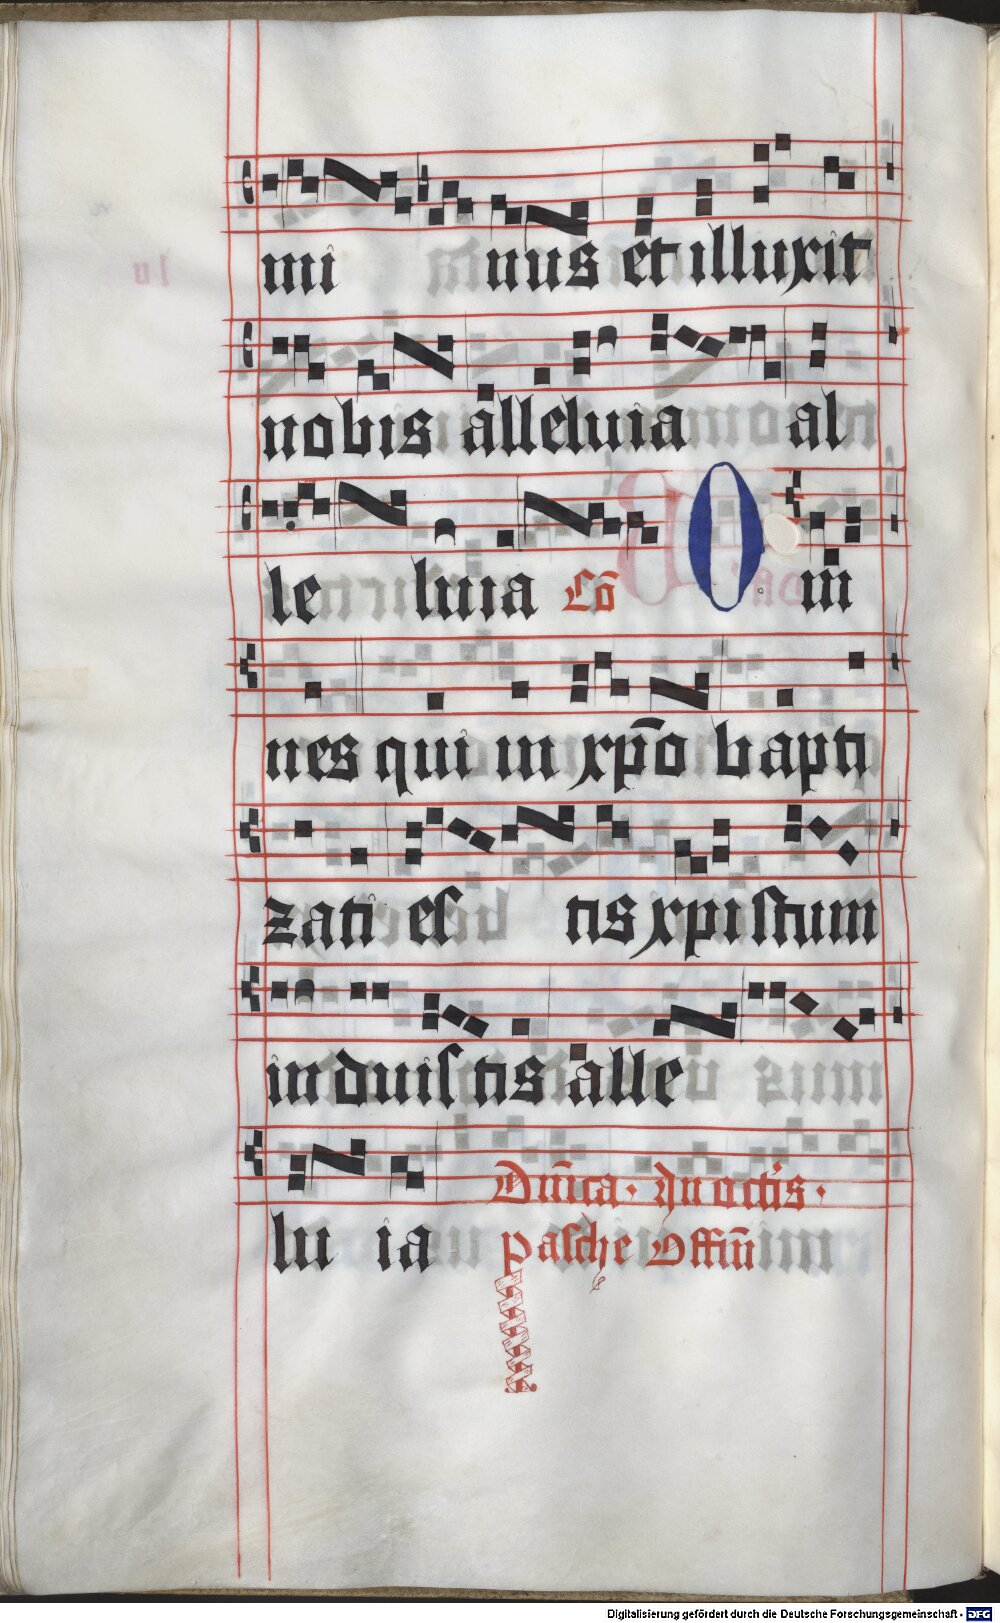 mi nus et illuxit
nobis alleluia al
le luia Cō Om̄
nes qui in xp̄o bapti
zati es tis xpistum
induistis alle
lu ia Dn̄ica · In octīs ·
pasche Offm̄
Digitalisierung gefördert durch die Deutsche Forschungsgemeinschaft - DFG